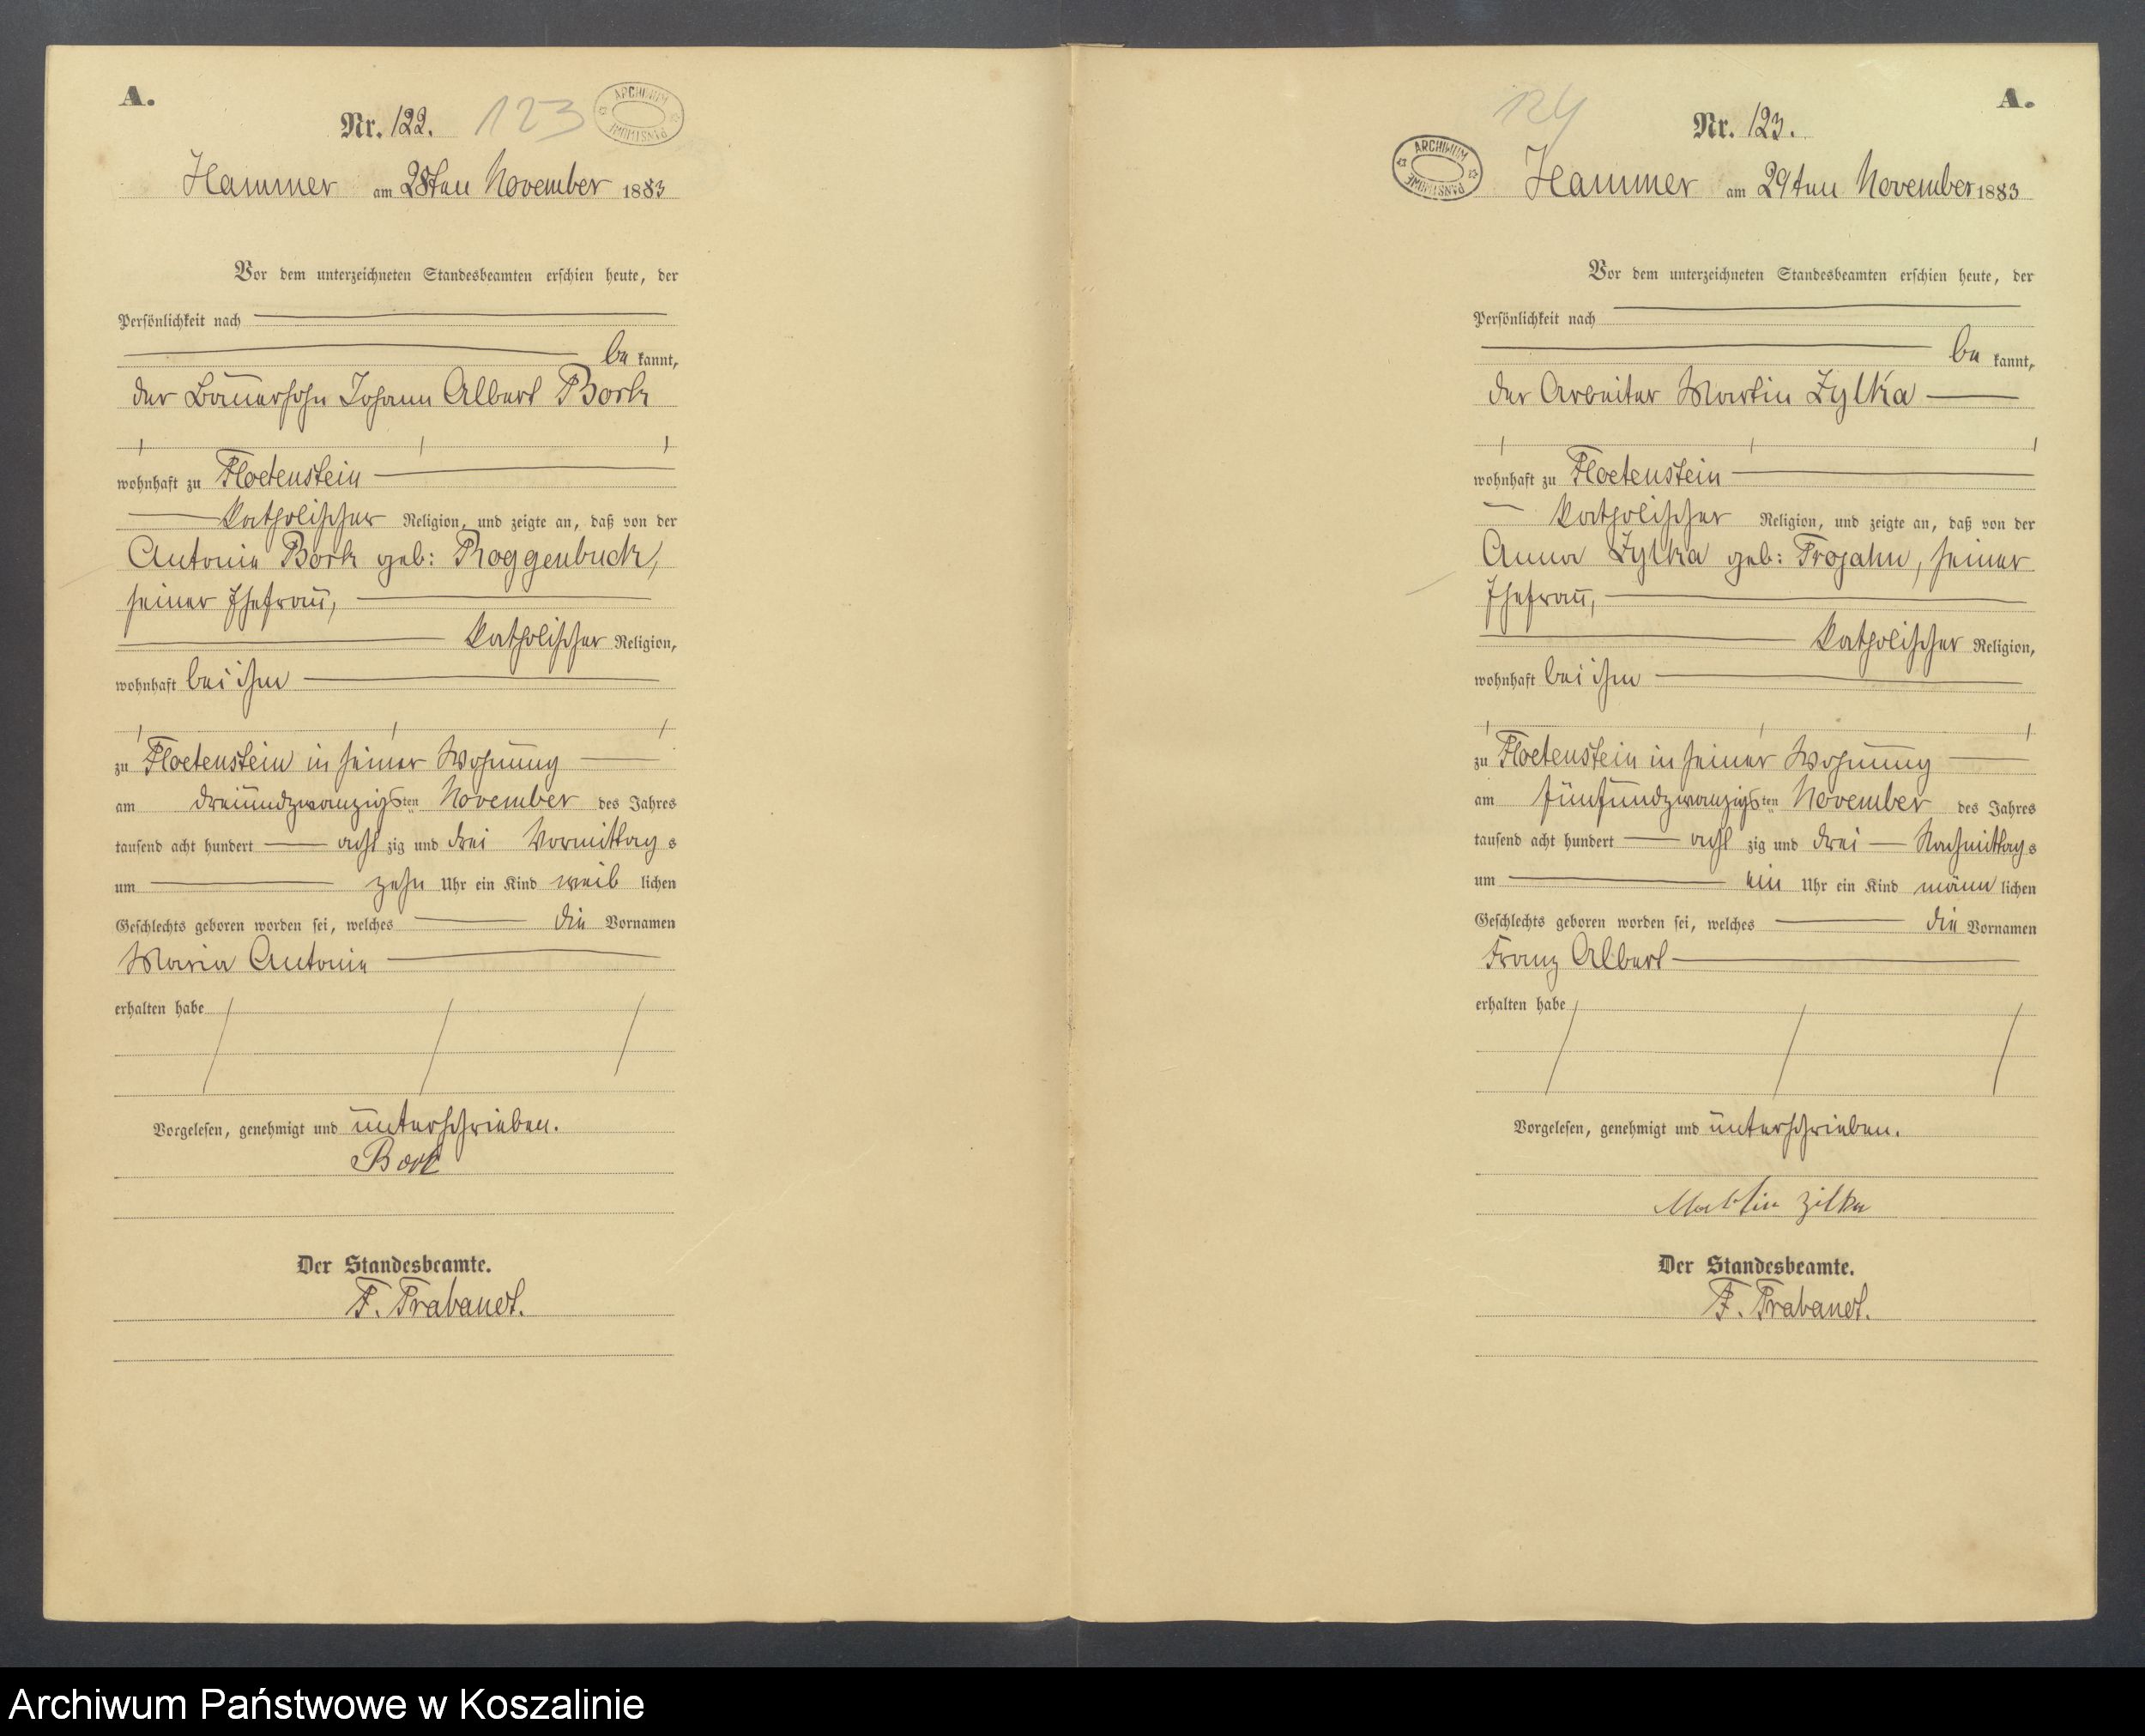 A.
Nr. 122. 123
ARCHIWUM PAŃSTWOWE
Hammer am 28ten November 1883
Vor dem unterzeichneten Standesbeamten erschien heute, der
Persönlichkeit nach
be kannt,
der Bauersohn Johann Albert Bork
wohnhaft zu Floetenstein
katholischer Religion, und zeigte an, daß von der
Antonie Bork geb: Roggenbuck,
seiner Ehefrau,
katholischer Religion,
wohnhaft bei ihm
zu Floetenstein in seiner Wohnung
am dreiundzwanzigsten November des Jahres
tausend acht hundert acht zig und drei Vormittag s
um zehn Uhr ein Kind weib lichen
Geschlechts geboren worden sei, welches die Vornamen
Maria Antonie
erhalten habe
Vorgelesen, genehmigt und unterschrieben.
Bork
Der Standesbeamte.
F. Trabandt.
A.
124
Nr. 123.
ARCHIWUM PAŃSTWOWE
Hammer am 29ten November 1883
Vor dem unterzeichneten Standesbeamten erschien heute, der
Persönlichkeit nach
be kannt,
der Arbeiter Martin Zylka
wohnhaft zu Floetenstein
katholischer Religion, und zeigte an, daß von der
Anna Zylka geb: Trojahn, seiner
Ehefrau,
katholischer Religion,
wohnhaft bei ihm
zu Floetenstein in seiner Wohnung
am fünfundzwanzigsten November des Jahres
tausend acht hundert acht zig und drei Nachmittag s
um ein Uhr ein Kind männ lichen
Geschlechts geboren worden sei, welches die Vornamen
Franz Albert
erhalten habe
Vorgelesen, genehmigt und unterschrieben.
Martin Zilka
Der Standesbeamte.
F. Trabandt.
Archiwum Państwowe w Koszalinie